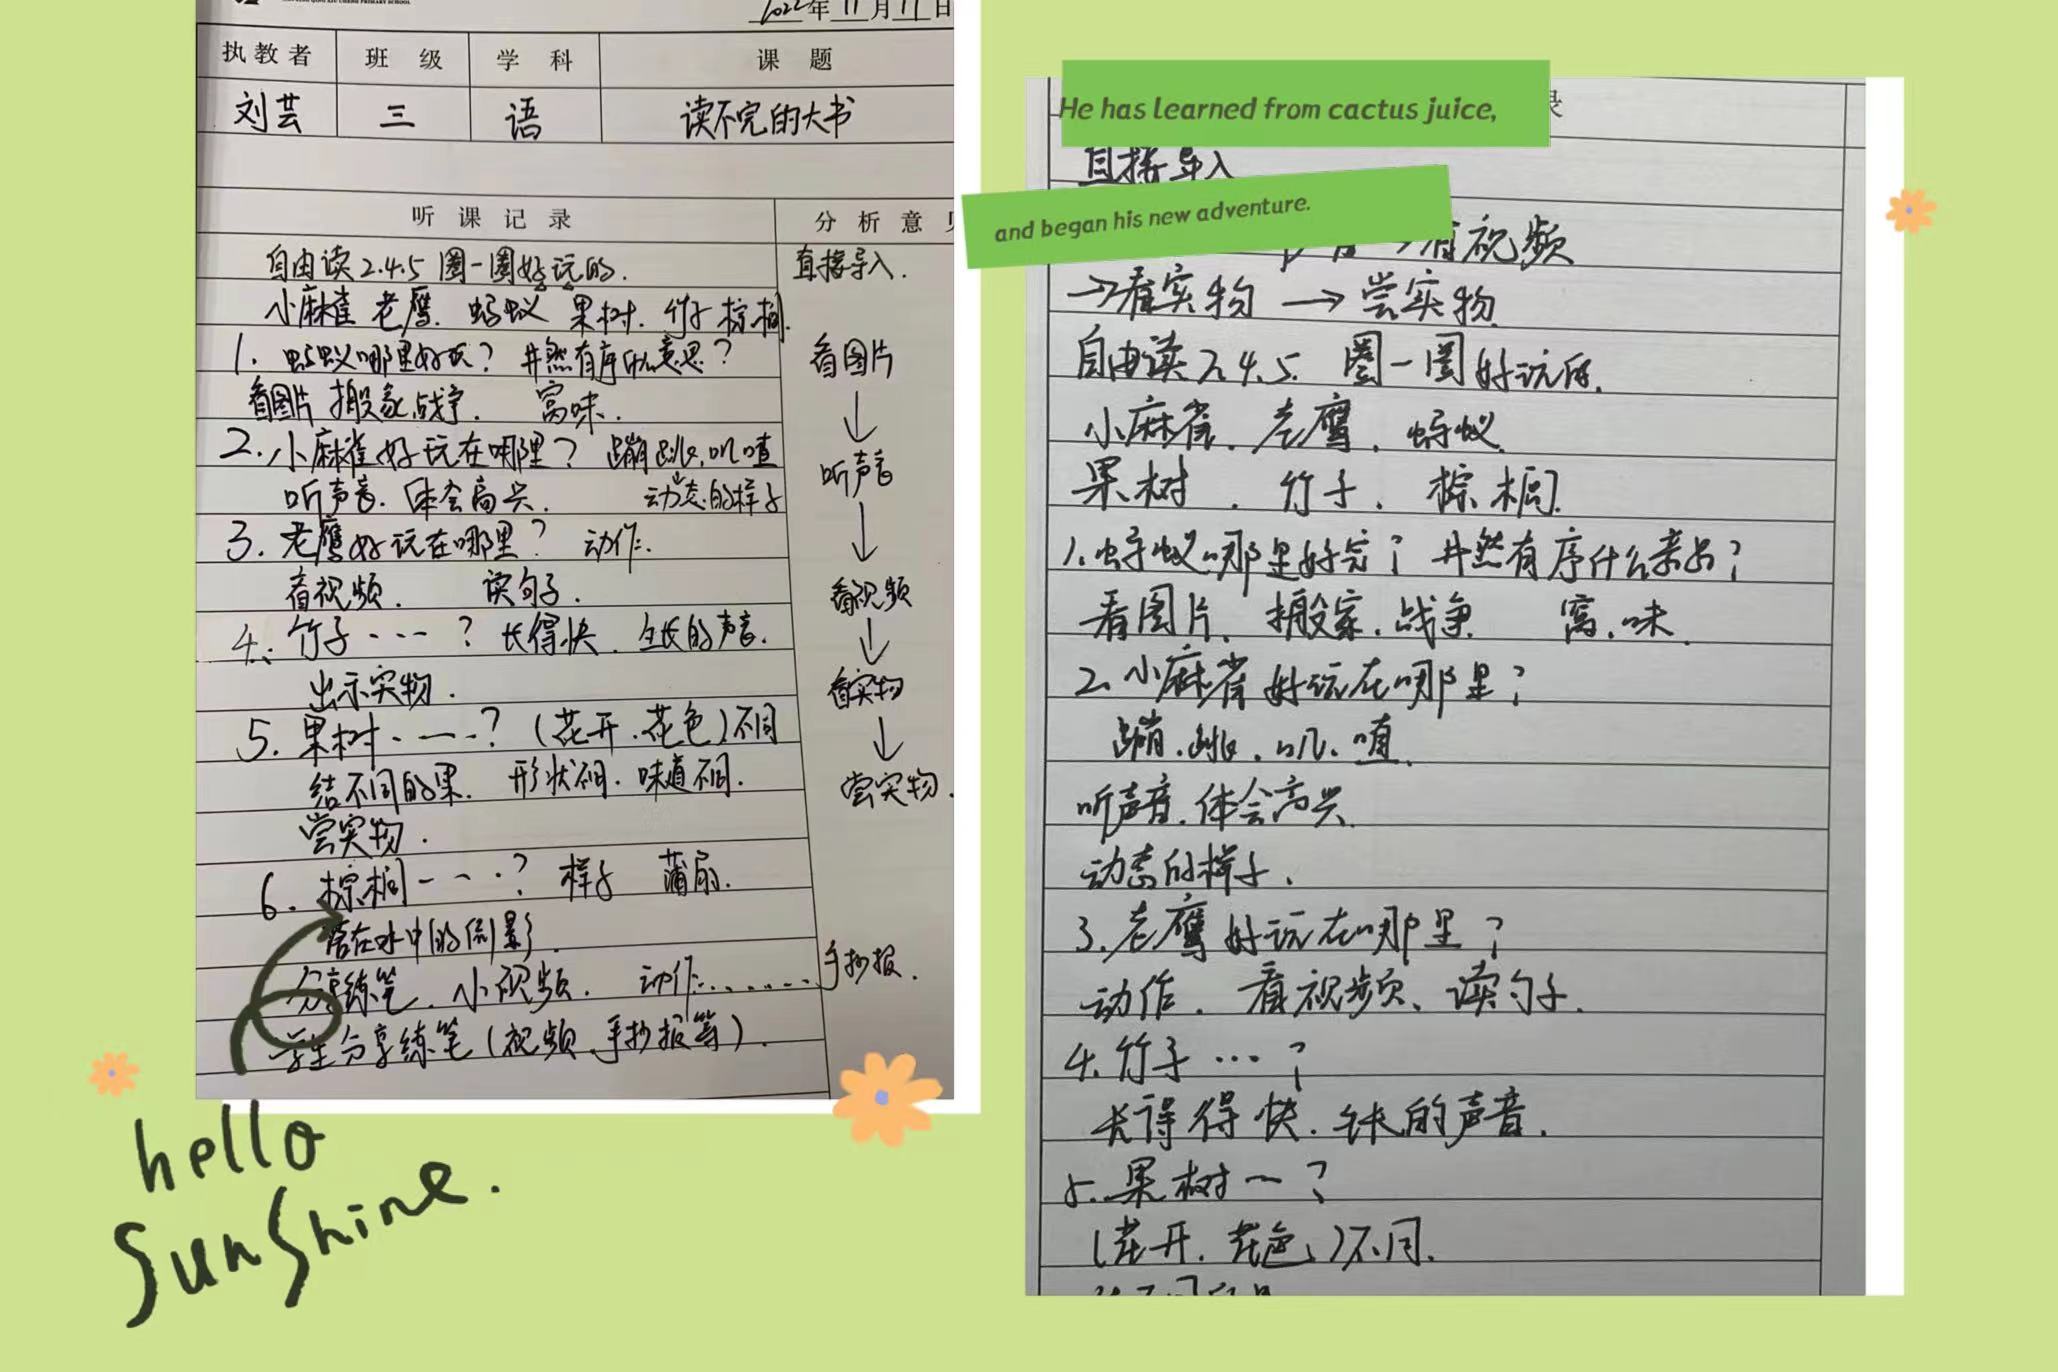 2022年11月17日
执教者 班级 学科 课题
刘芸 三 语 读不完的大书
听课记录 分析意见
自由读2.4.5 圈一圈好玩的. 直接导入.
小麻雀 老鹰. 蚂蚁 果树. 竹子 棕榈.
1. 蚂蚁哪里好玩? 井然有序什么意思? 看图片
看图片 搬家 战争. 窝 味.
2. 小麻雀好玩在哪里? 蹦 跳. 叽 喳 听声音
听声音. 体会高兴. 动态的样子
3. 老鹰好玩在哪里? 动作.
看视频. 读句子. 看视频
4. 竹子……? 长得快. 生长的声音.
出示实物. 看实物
5. 果树……? (花开.花色)不同
结不同的果. 形状不同. 味道不同. 尝实物.
尝实物.
6. 棕榈……? 样子 蒲扇.
落在水中的倒影.
分享练笔. 小视频. 动作……手抄报.
学生分享练笔(视频、手抄报等).
hello
Sunshine.
He has learned from cactus juice,
录
直接导入
and began his new adventure.
看视频
→看实物→尝实物.
自由读2.4.5. 圈一圈好玩的.
小麻雀. 老鹰. 蚂蚁.
果树. 竹子. 棕榈.
1. 蚂蚁哪里好玩? 井然有序什么意思?
看图片. 搬家. 战争 窝. 味.
2. 小麻雀好玩在哪里?
蹦.跳.叽.喳.
听声音. 体会高兴.
动态的样子.
3. 老鹰好玩在哪里?
动作. 看视频、读句子.
4. 竹子…?
长得得快. 生长的声音.
5. 果树…?
(花开. 花色.)不同.